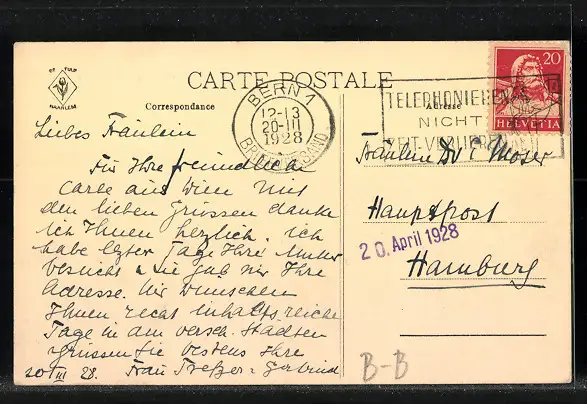 DE TULP
HAARLEM
CARTE POSTALE
Correspondance
Adresse
BERN 1
12-13
20·III
1928
BRIEFVERSAND
TELEPHONIEREN
NICHT
ZEIT VERLIEREN
20
HELVETIA
Liebes Fräulein
Für Ihre freundliche
Carte aus Wien mit
den lieben Grüssen danke
ich Ihnen herzlich. Ich
habe letzter Tage Ihre Mutter
besucht & sie gab mir Ihre
Adresse. Wir wünschen
Ihnen recht inhaltsreiche
Tage in den versch. Städten
Grüssen Sie bestens Ihre
20 III 28. Frau
Fräulein Dr C Moser
Hauptpost
20. April 1928
Hamburg
B-B